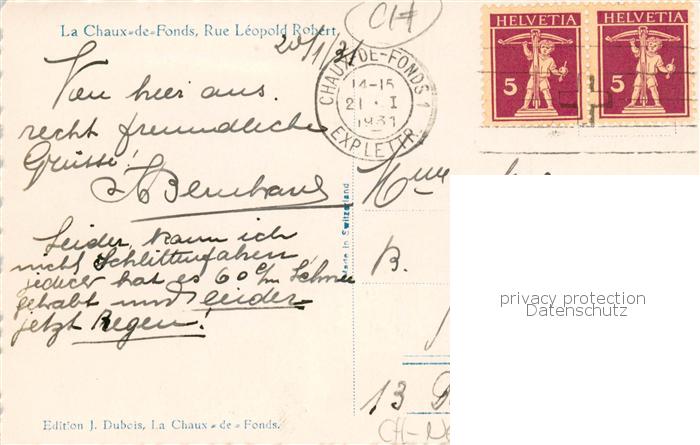 La Chaux-de-Fonds, Rue Léopold Robert.
20/1/31
CH
HELVETIA
5
HELVETIA
5
CHAUX-DE-FONDS 1
14-15
21. I
1931
EXP. LETTR.
Von hier aus
recht freundliche
Grüsse!
Bernhard
Leider kann ich
nicht Schlittenfahren
hat es 60 c/m Schnee
gehabt und leider
jetzt Regen!
Made in Switzerland
Mme
B.
13
CH-
privacy protection
Datenschutz
Edition J. Dubois, La Chaux-de-Fonds.